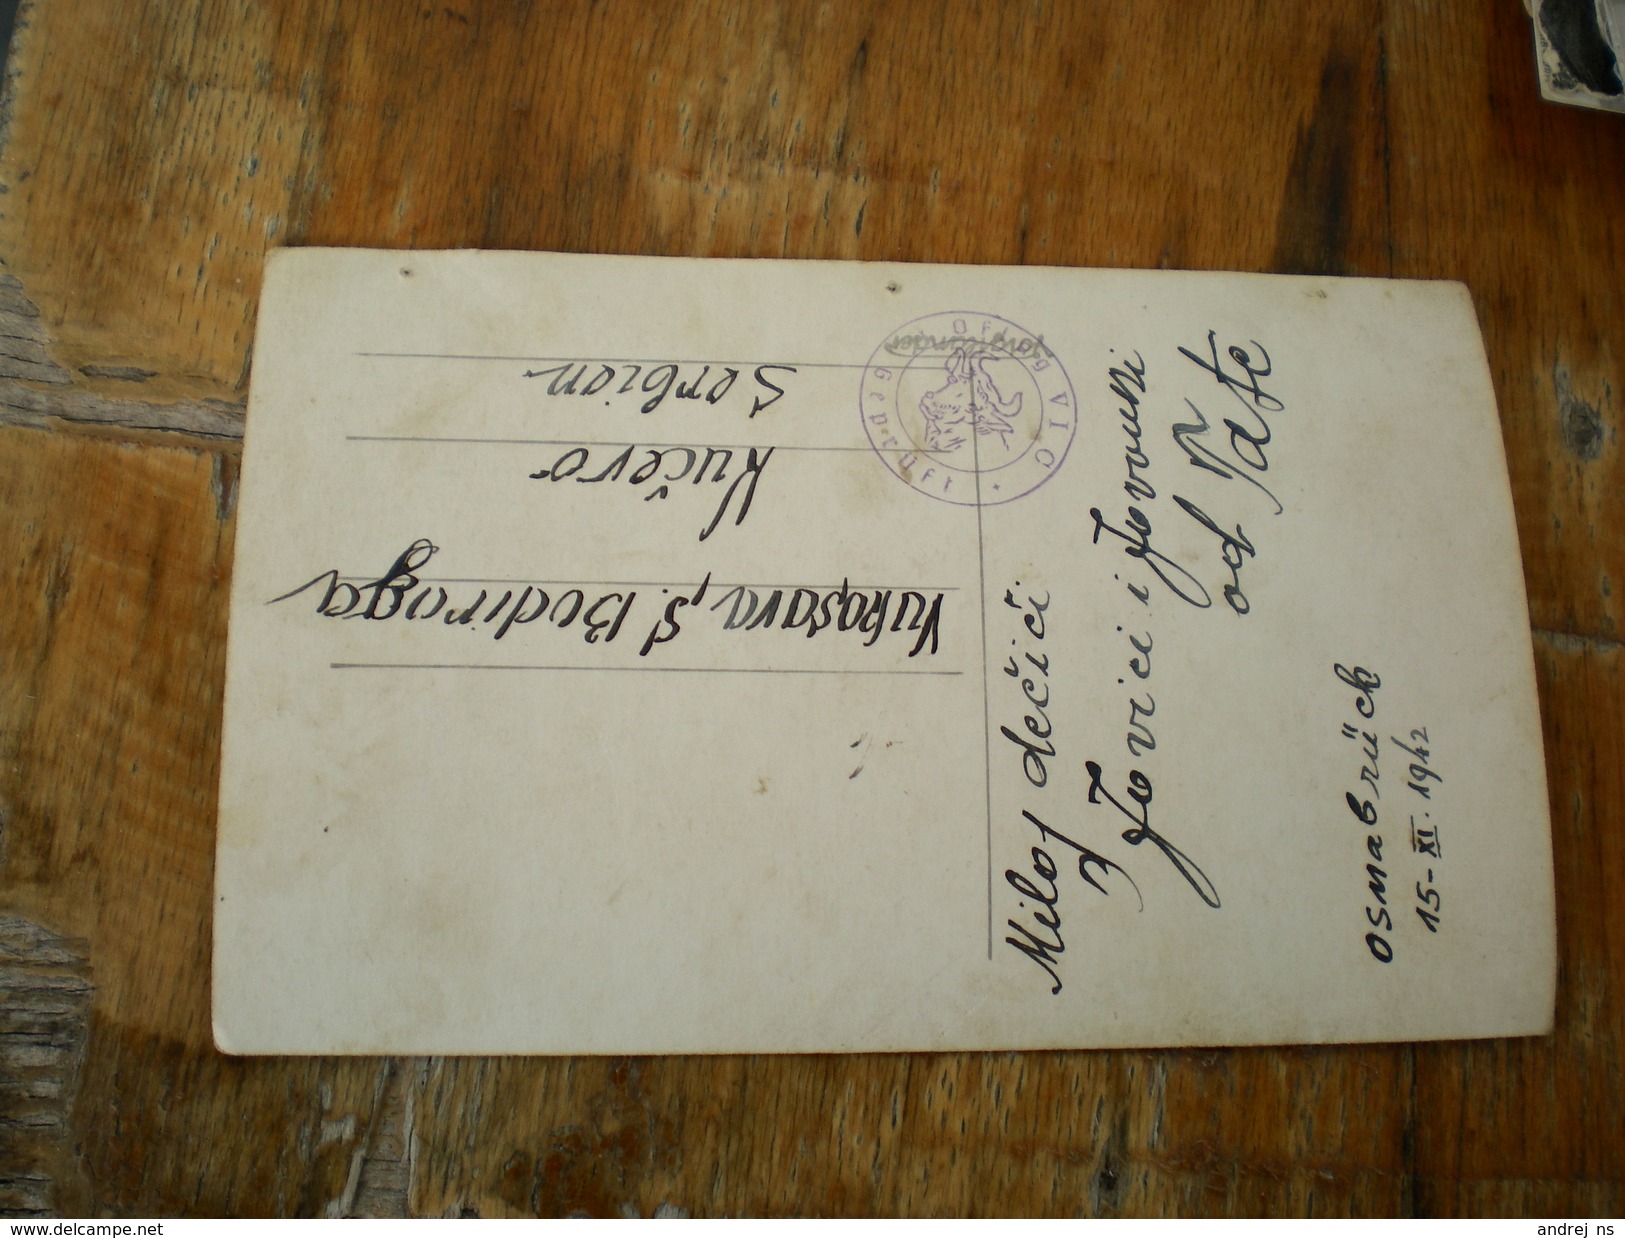 Miloj dečici.
Jovici i Jovanki
od Tate
Osnabrück
15-XI. 1942
Vukosava S. Bodiroga
Kučevo
Serbien
Oflag VI C
Geprüft
www.delcampe.net
andrej_ns